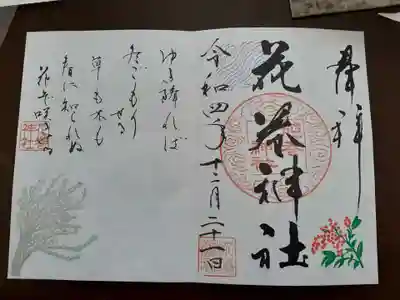 奉拝
神社
令和四年十二月二十一日
ゆき降れば
冬ごもり
せる
草も木も
春に知られぬ
花ぞ咲きける